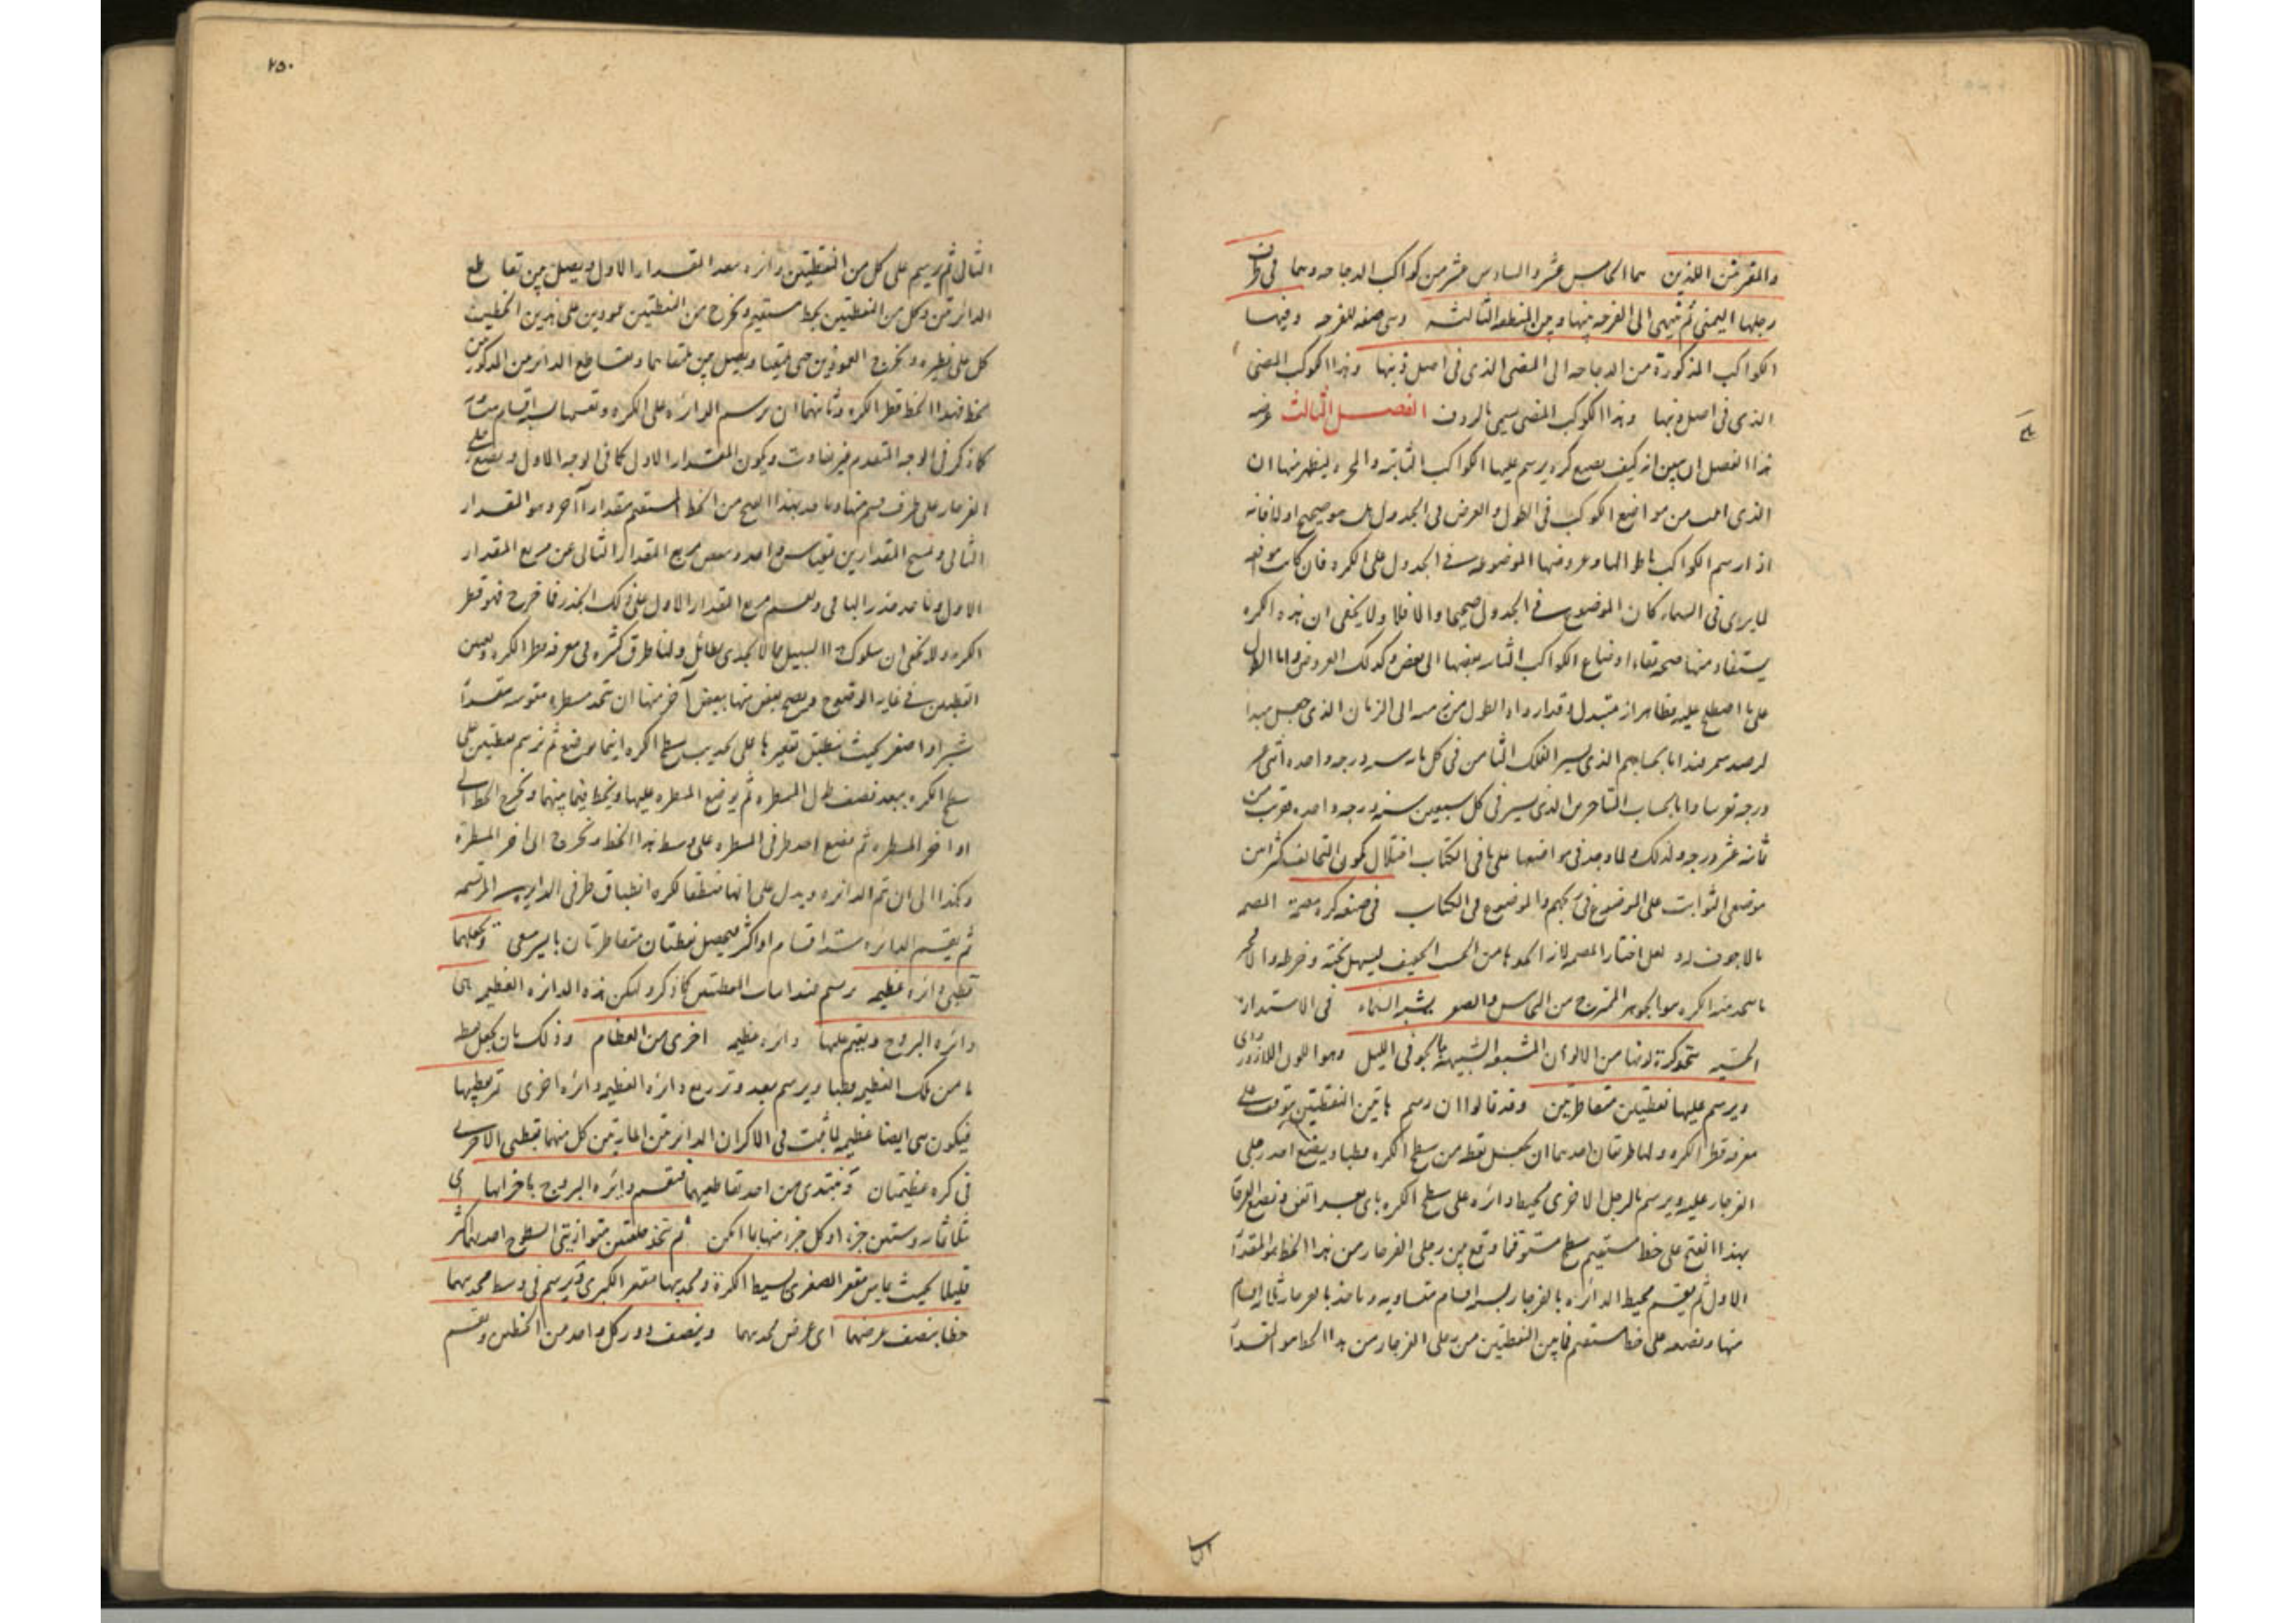 والمقترنتين اللذين هما الخامس عشر والسادس عشر من كواكب الدجاجه وهما في طرف
رجلها اليمنى ثم ينتهي الى الفرجه بينها وبين المنطقه الثالثه وهي صفه للفرجه وفيها
الكواكب المذكورة من الدجاجه الى المضئ الذي في اصل ذنبها وهذا الكوكب المضئ
الذي في اصل ذنبها وهذا الكوكب المضئ يسمى بالردف الفصل الثالث غرضه
هذا الفصل ان يبين انه كيف يصنع كره يرسم عليها الكواكب الثابته والمجره ليظهر منها ان
الذي من مواضع الكوكب في الطول والعرض في الجدول هل هو صحيح او لا فانه
اذا رسم الكواكب باطوالها وعروضها الموضوعه في الجدول على الكره فان كانت موافقه
لما يرى في السماء كان الموضوع في الجدول صحيحا والا فلا ولا يخفى ان هذه الكره
يستفاد منها صحه بقاء اوضاع الكواكب الثابته بعضها الى بعض وكذلك العروض واما الطول
على ما اصطلح عليه فظاهر انه يتبدل
الذي يسير الفلك الثامن في كل مايه سنه درجه واحده اثنى عشر
درجه تقريبا واما بحساب المتاخرين الذي يسير في كل سبعين سنه درجه واحده بقرب من
ثمانيه عشر درجه ولذلك لما وجد في مواضعها على ما في الكتاب اختلال لكون التخالف كثيرا بين
موضعي الثوابت على الموضوع في زيجهم والموضوع في الكتاب في صنعه كره مصمته المصمت
ما لا جوف له ولعل اختار المصمته لان اكثرها من الخشب الخفيف ليسهل نحته وخرطه والا فخير
ما يتخذ منه الكره هو الجوهر الممتزج من النحاس والصفر يشبه السماء في الاستداره
الحسيه نتخذ كرة لونها من الالوان المشبعه الشبيهة بالجو في الليل وهو اللون اللازوردي
ويرسم عليها نقطتين متقاطرتين وقد قالوا ان رسم هاتين النقطتين يتوقف على
معرفه قطر الكره ولها طريقان احدهما ان يجعل نقطه من سطح الكره قطبا ويضع احد رجلي
الفرجار عليه ويرسم بالرجل الاخرى محيط دائره على سطح الكره باي بعد اتفق ونضع الفرجار
بهذا الفتح على خط مستقيم في سطح مستو فما وقع بين رجلي الفرجار من هذا الخط هو المقدار
الاول ثم يقسم محيط الدائره بالفرجار بسته اقسام متساويه وناخذ بالفرجار ثلثه اقسام
منها ونضعه على خط مستقيم فما بين النقطتين من رجلي الفرجار من هذا الخط هو المقدار
٢٥٠
الثاني ثم يرسم على كل من النقطتين دائره ببعد المقدار الاول ويصل بين تقاطع
الدائرتين وكل من النقطتين بخط مستقيم ونخرج من النقطتين عمودين على هذين الخطين
كل على نظيره ونخرج العمودين حتى يلتقيا ويصل بين ملتقاهما وتقاطع الدائرتين المذكورتين
بخط فهذا الخط قطر الكره وثانيهما ان يرسم الدائره على الكره ونقسمها بسته اقسام متساويه
كما ذكر في الوجه المتقدم من غير تفاوت ويكون المقدار الاول كما في الوجه الاول ويضع على
الفرجار على طرف قسم منها وناخذ بهذا الفتح من الخط المستقيم مقدارا آخر وهو المقدار
الثاني ونمسح المقدارين بمقياس واحد وننقص مربع المقدار الثاني عن مربع المقدار
الاول وناخذ جذر الباقي ونقسم مربع المقدار الاول على ذلك الجذر فما خرج فهو قطر
الكره ولا يخفى ان سلوك هذا السبيل مما لا يجدي بطائل ولنا طرق كثيره في معرفه قطر الكره وتعيين
القطبين في غايه الوضوح ويصح بعض منها ببعض آخر منها ان نتخذ مسطره مقوسه مقدار
شبر او اصغر بحيث ينطبق تقعيرها على تحديب سطح الكره اينما توضع ثم نرسم نقطتين على
سطح الكره ببعد نصف طول المسطره ثم يوضع المسطره عليها ويخط فيما بينهما ونخرج الخط الى
اواخر المسطره ثم نضع احد طرفي المسطره على وسط هذا الخط ونخرج الى اخر المسطرة
وهكذا الى ان تتم الدائره ويدل على انها منطقه للكره انطباق طرفي الدايره المرتسمه
ثم يقسم الدائره سته اقسام او اكثر فيحصل نقطتان متقاطرتان بايسر سعي ونجعلهما
قطبي دائره عظيمه رسم عند اثبات القطبين كما ذكر ولتكن هذه الدائره العظيمه هي
دائره البروج ويقيم عليها دائره عظيمه اخرى من العظام وذلك بان يجعل نقطه
ما من تلك العظيمه قطبا ويرسم ببعد وتر ربع دائره العظيمه دائره اخرى تمر بقطبيها
فيكون هي ايضا عظيمه لما ثبت في الاكر ان الدائرتين المارتين كل منهما بقطبي الاخرى
في كره عظيمتان ونبتدئ من احد تقاطعيهما فنقسم دائره البروج باجزائها اي
بثلثمائه وستين جزءا وكل جزء منها بما امكن ثم نتخذ حلقتين متوازيتي السطوح احديهما اكبر
قليلا بحيث يماس مقعر الصغرى بسيط الكرة ومحدبها مقعر الكبرى ويرسم في وسط محدبهما
خطا ينصف عرضهما اي عرض محدبهما وينصف دور كل واحد من الخطين ونقسم